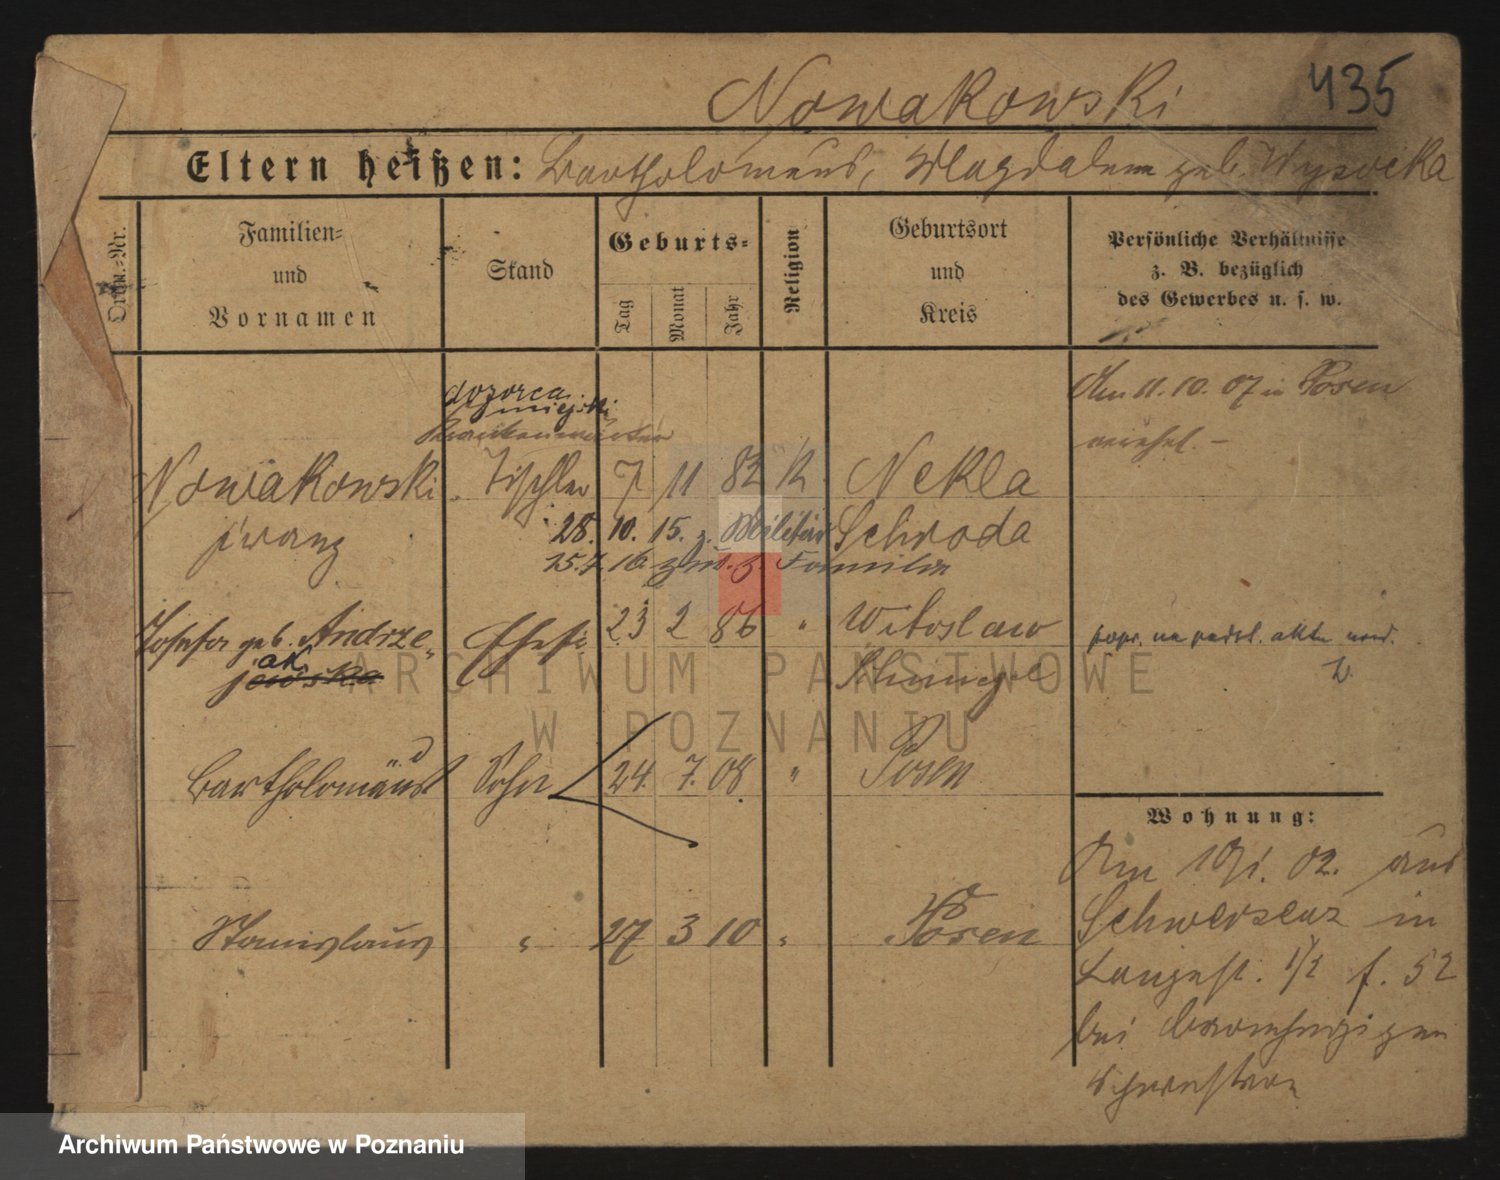 Nowakowski 435
Eltern heißen: Bartholomäus, Magdalena geb. Wysocka
Ordn.-Nr.
Familien-
und
Vornamen
Stand
Geburts-
Tag
Monat
Jahr
Religion
Geburtsort
und
Kreis
Persönliche Verhältnisse
z. B. bezüglich
des Gewerbes u. s. w.
dozorca
miejski
Krankenwärter
Am 11.10.07 in Posen
verehel. –
Nowakowski Tischler 7 11 82 K. Nekla
Franz Schroda
28. 10. 15. z. Militär
25.7.16 zur. z. Familie
Josefa geb. Andrze- Ehefr. 23 2 86 " Witoslaw
jewska
ak
Schmiegel
popr. na podst. aktu urod.
Bartholomäus Sohn 24. 7. 08 " Posen
Stanislaus " 27 3 10 " Posen
Wohnung:
Am 02. aus
Schwersenz in
Langest. 1/2 f. 52
bei barmherzigen
Schwestern
ARCHIWUM PAŃSTWOWE
W POZNANIU
Archiwum Państwowe w Poznaniu